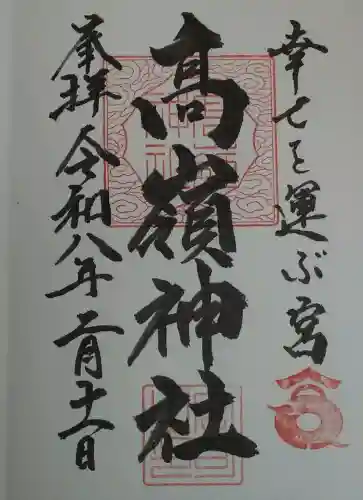 幸せを運ぶ宮
髙嶺神社
奉拝 令和八年二月十一日